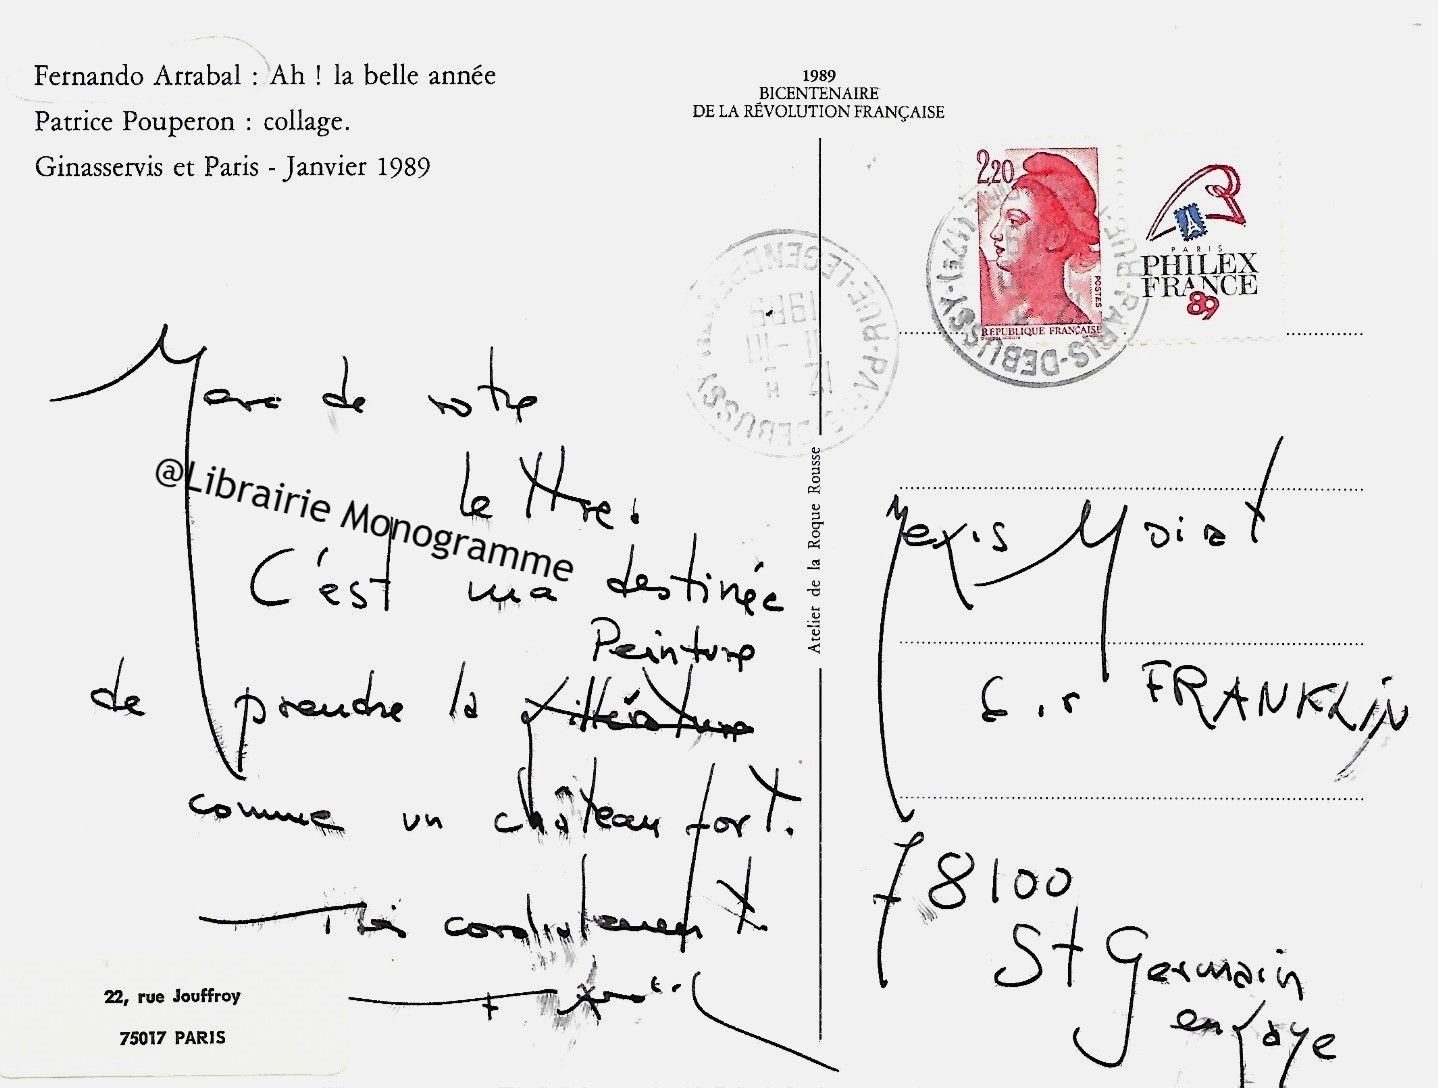 Fernando Arrabal : Ah ! la belle année
Patrice Pouperon : collage.
Ginasservis et Paris - Janvier 1989
1989
BICENTENAIRE
DE LA RÉVOLUTION FRANÇAISE
2,20
POSTES
REPUBLIQUE FRANÇAISE
PARIS
PHILEX
FRANCE
89
PARIS-DEBUSSY
Merci de votre
lettre.
C'est ma destinée
Peinture
de prendre la Littérature
comme un château fort.
Très cordialement
22, rue Jouffroy
75017 PARIS
@Librairie Monogramme
Atelier de la Roque Rousse
6, r FRANKLIN
78100
St Germain
en Laye